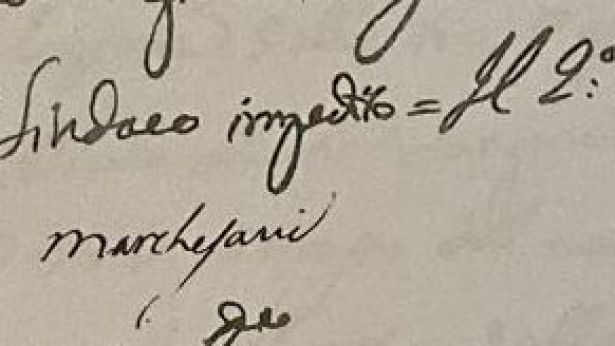 Sindaco impedito = Il 2:º
Marchesani